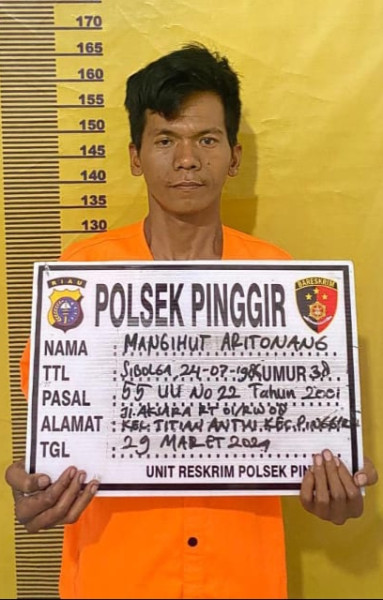 170
165
160
155
150
145
140
135
130
RIAU
BARESKRIM
POLSEK PINGGIR
NAMA : MANGIHUT ARITONANG
TTL : SIBOLGA, 24-07-1985 UMUR 38
PASAL : 55 UU NO 22 Tahun 2001
ALAMAT : Jl. RT 01 RW 08
KEL. TITIAN ANTUI, KEC. PINGGIR
TGL : 29 MARET 2024
UNIT RESKRIM POLSEK PIN